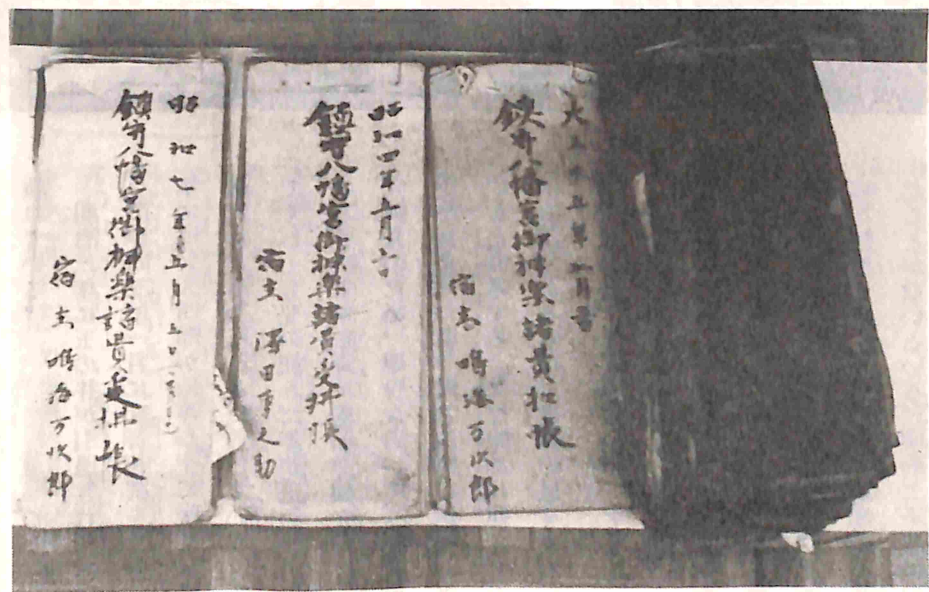 大正十五年五月吉
鎮守八幡宮御神楽諸費扣帳
宿主 鳴海万次郎
昭和四年五月六
鎮守八幡宮御神楽諸費受拂帳
宿主 澤田事之助
昭和七年五月五日
鎮守八幡宮御神楽諸費受拂帳
宿主 鳴海万次郎